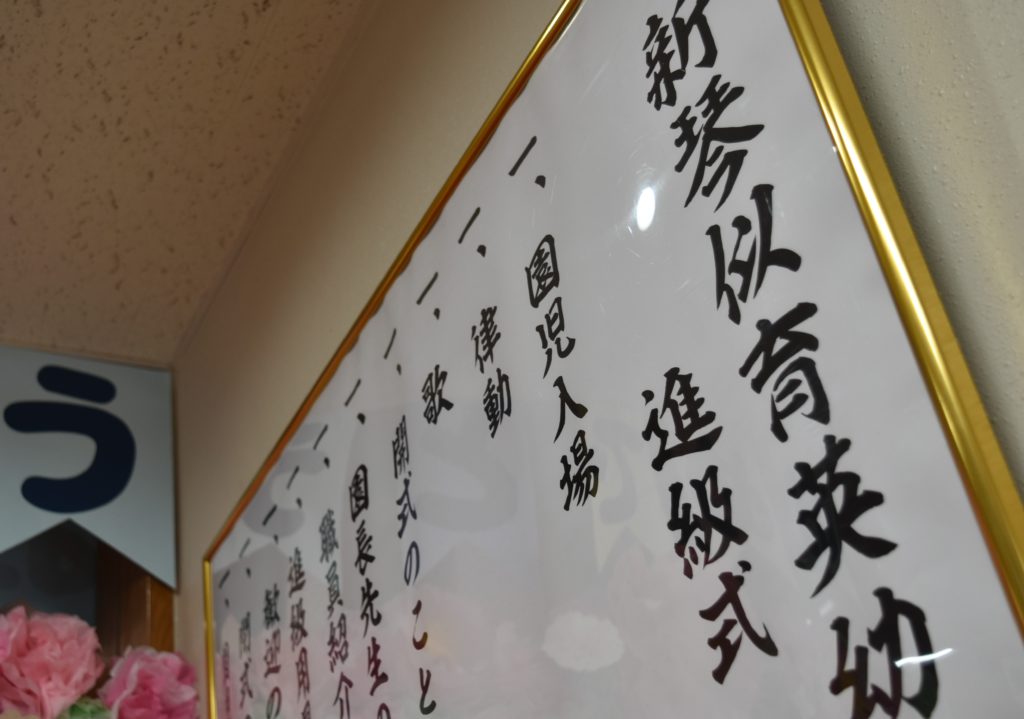 新琴似育英幼
進級式
一、園児入場
一、律動
一、歌
一、開式のこと
一、園長先生の
一、職員紹介
一、進級用
一、歓迎の
一、閉式
一、園
う